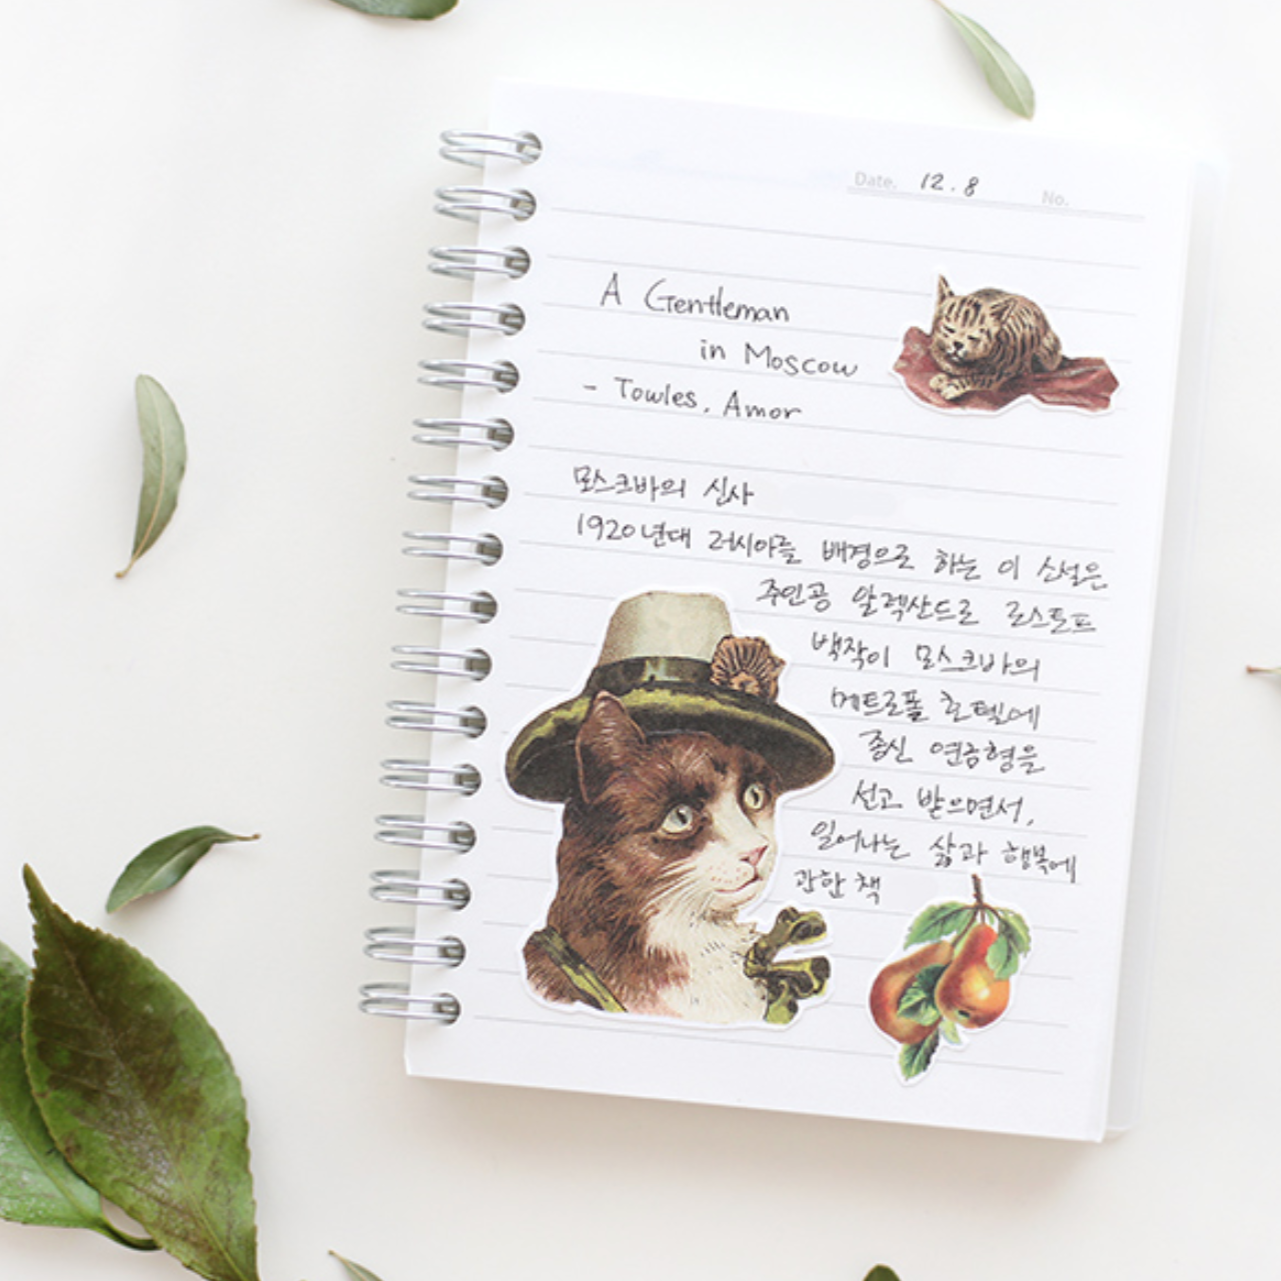 Date. 12.8 No.
A Gentleman
in Moscow
- Towles, Amor
모스크바의 신사
1920년대 러시아를 배경으로 하는 이 소설은
주인공 알렉산드로 로스토프
백작이 모스크바의
메트로폴 호텔에
종신 연금형을
선고 받으면서,
일어나는 삶과 행복에
관한 책